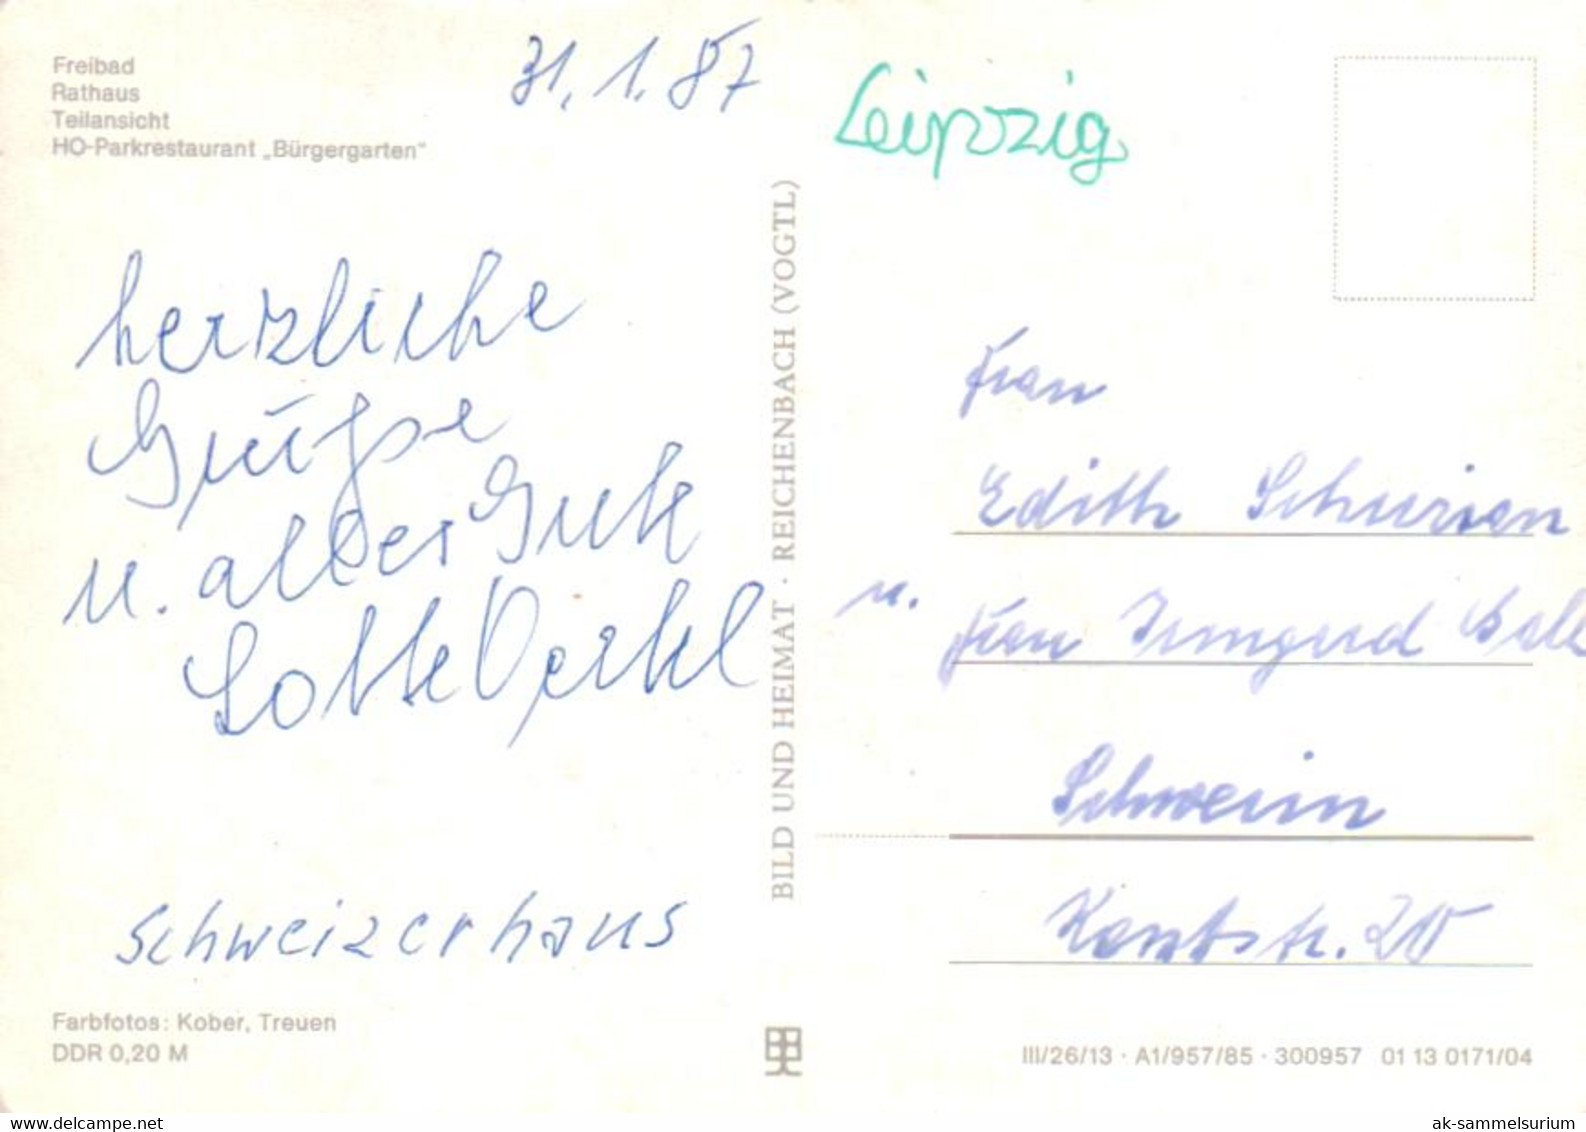 Freibad
Rathaus
Teilansicht
HO-Parkrestaurant „Bürgergarten"
31.1.87
herzliche
Grüße
u. alles Gute
Lotte Oertel
Schweizerhaus
Farbfotos: Kober, Treuen
DDR 0,20 M
BILD UND HEIMAT · REICHENBACH (VOGTL)
Leipzig
Frau
Edith Schurian
u.
Frau Irmgard
Schwerin
Kantstr. 20
III/26/13 · A1/957/85 · 300957 01 13 0171/04
www.delcampe.net
ak-sammelsurium